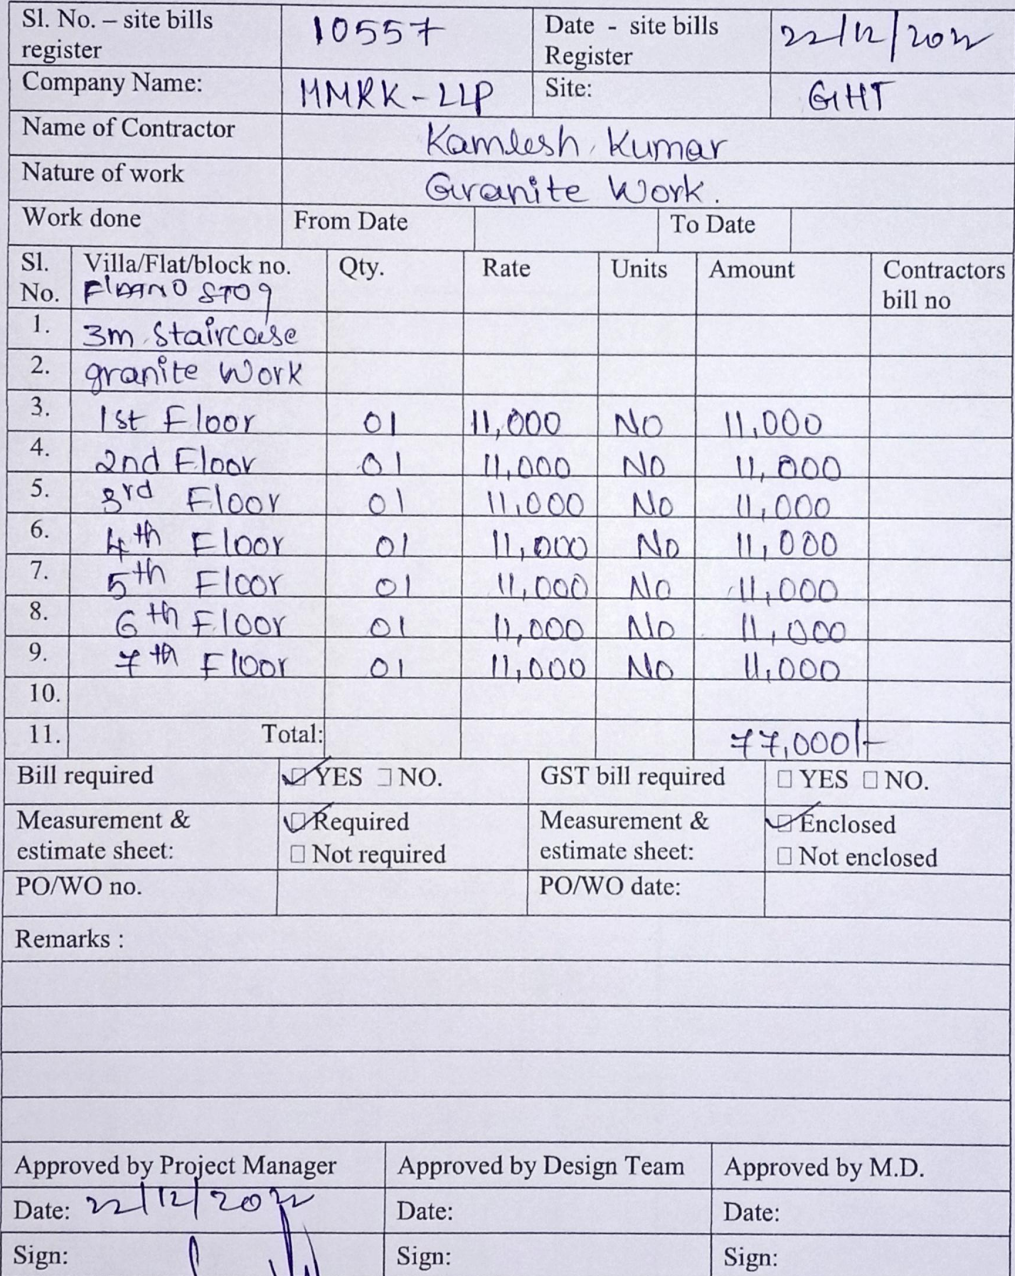 Sl. No. – site bills register 10557 Date - site bills Register 22/12/2022
Company Name: MMRK-LLP Site: GHT
Name of Contractor Kamlesh Kumar
Nature of work Granite Work.
Work done From Date To Date
Sl. No. Villa/Flat/block no. Qty. Rate Units Amount Contractors bill no
1. 3m staircase
2. granite Work
3. 1st Floor 01 11,000 No 11,000
4. 2nd Floor 01 11,000 No 11,000
5. 3rd Floor 01 11,000 No 11,000
6. 4th Floor 01 11,000 No 11,000
7. 5th Floor 01 11,000 No 11,000
8. 6th Floor 01 11,000 No 11,000
9. 7th Floor 01 11,000 No 11,000
10.
11. Total: 77,000/-
Bill required ☑ YES ☐ NO. GST bill required ☐ YES ☐ NO.
Measurement & estimate sheet: ☑ Required ☐ Not required Measurement & estimate sheet: ☑ Enclosed ☐ Not enclosed
PO/WO no. PO/WO date:
Remarks :
Approved by Project Manager Approved by Design Team Approved by M.D.
Date: 22/12/2022 Date: Date:
Sign: Sign: Sign: